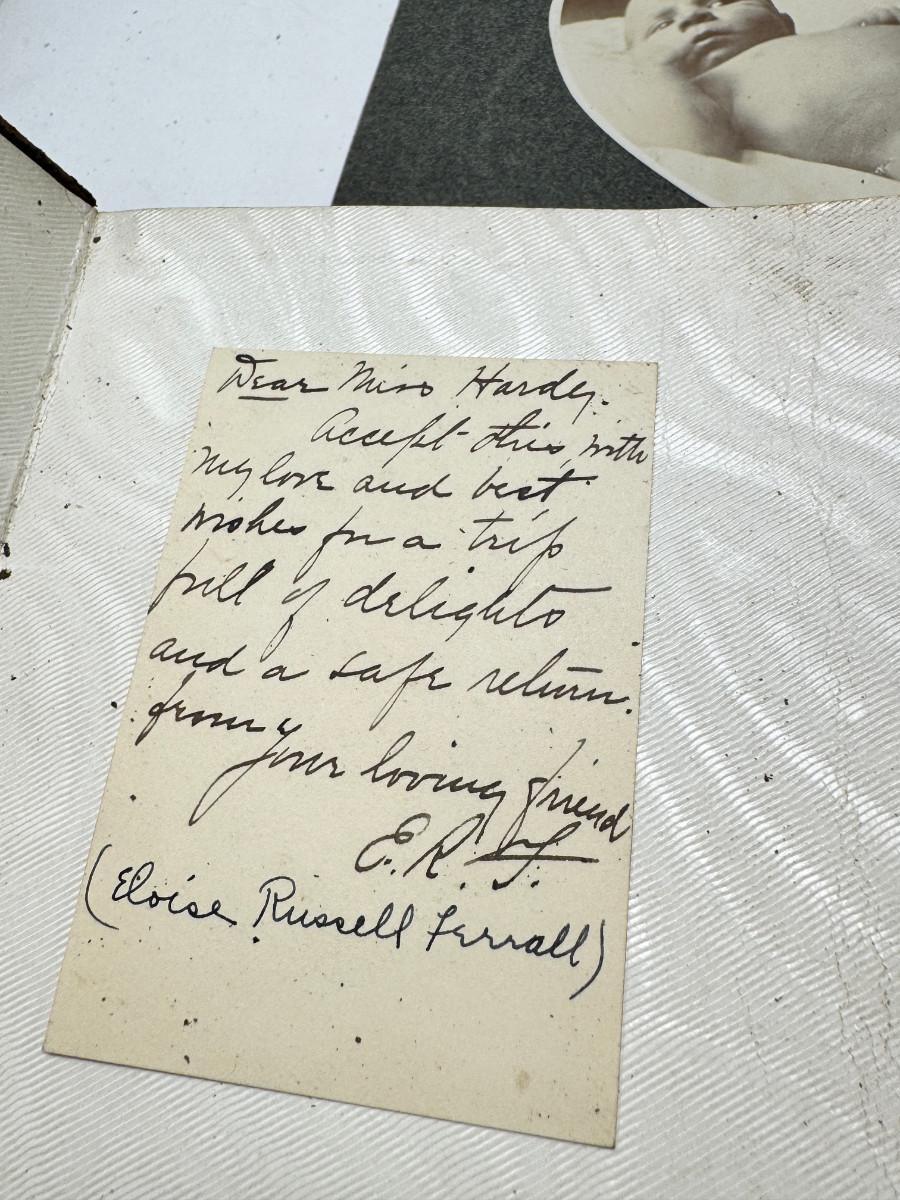 Dear Miss Hardy.
Accept this with
my love and best
wishes for a trip
full of delights
and a safe return.
from
Your loving friend
E. R. F.
(Eloise Russell Ferrall)